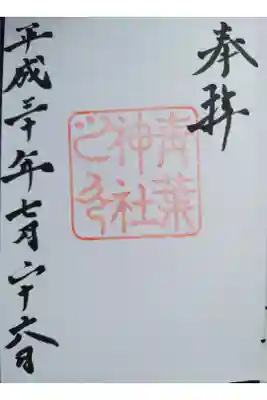 奉拜
青葉
神社
之印
平成三十年七月二十六日